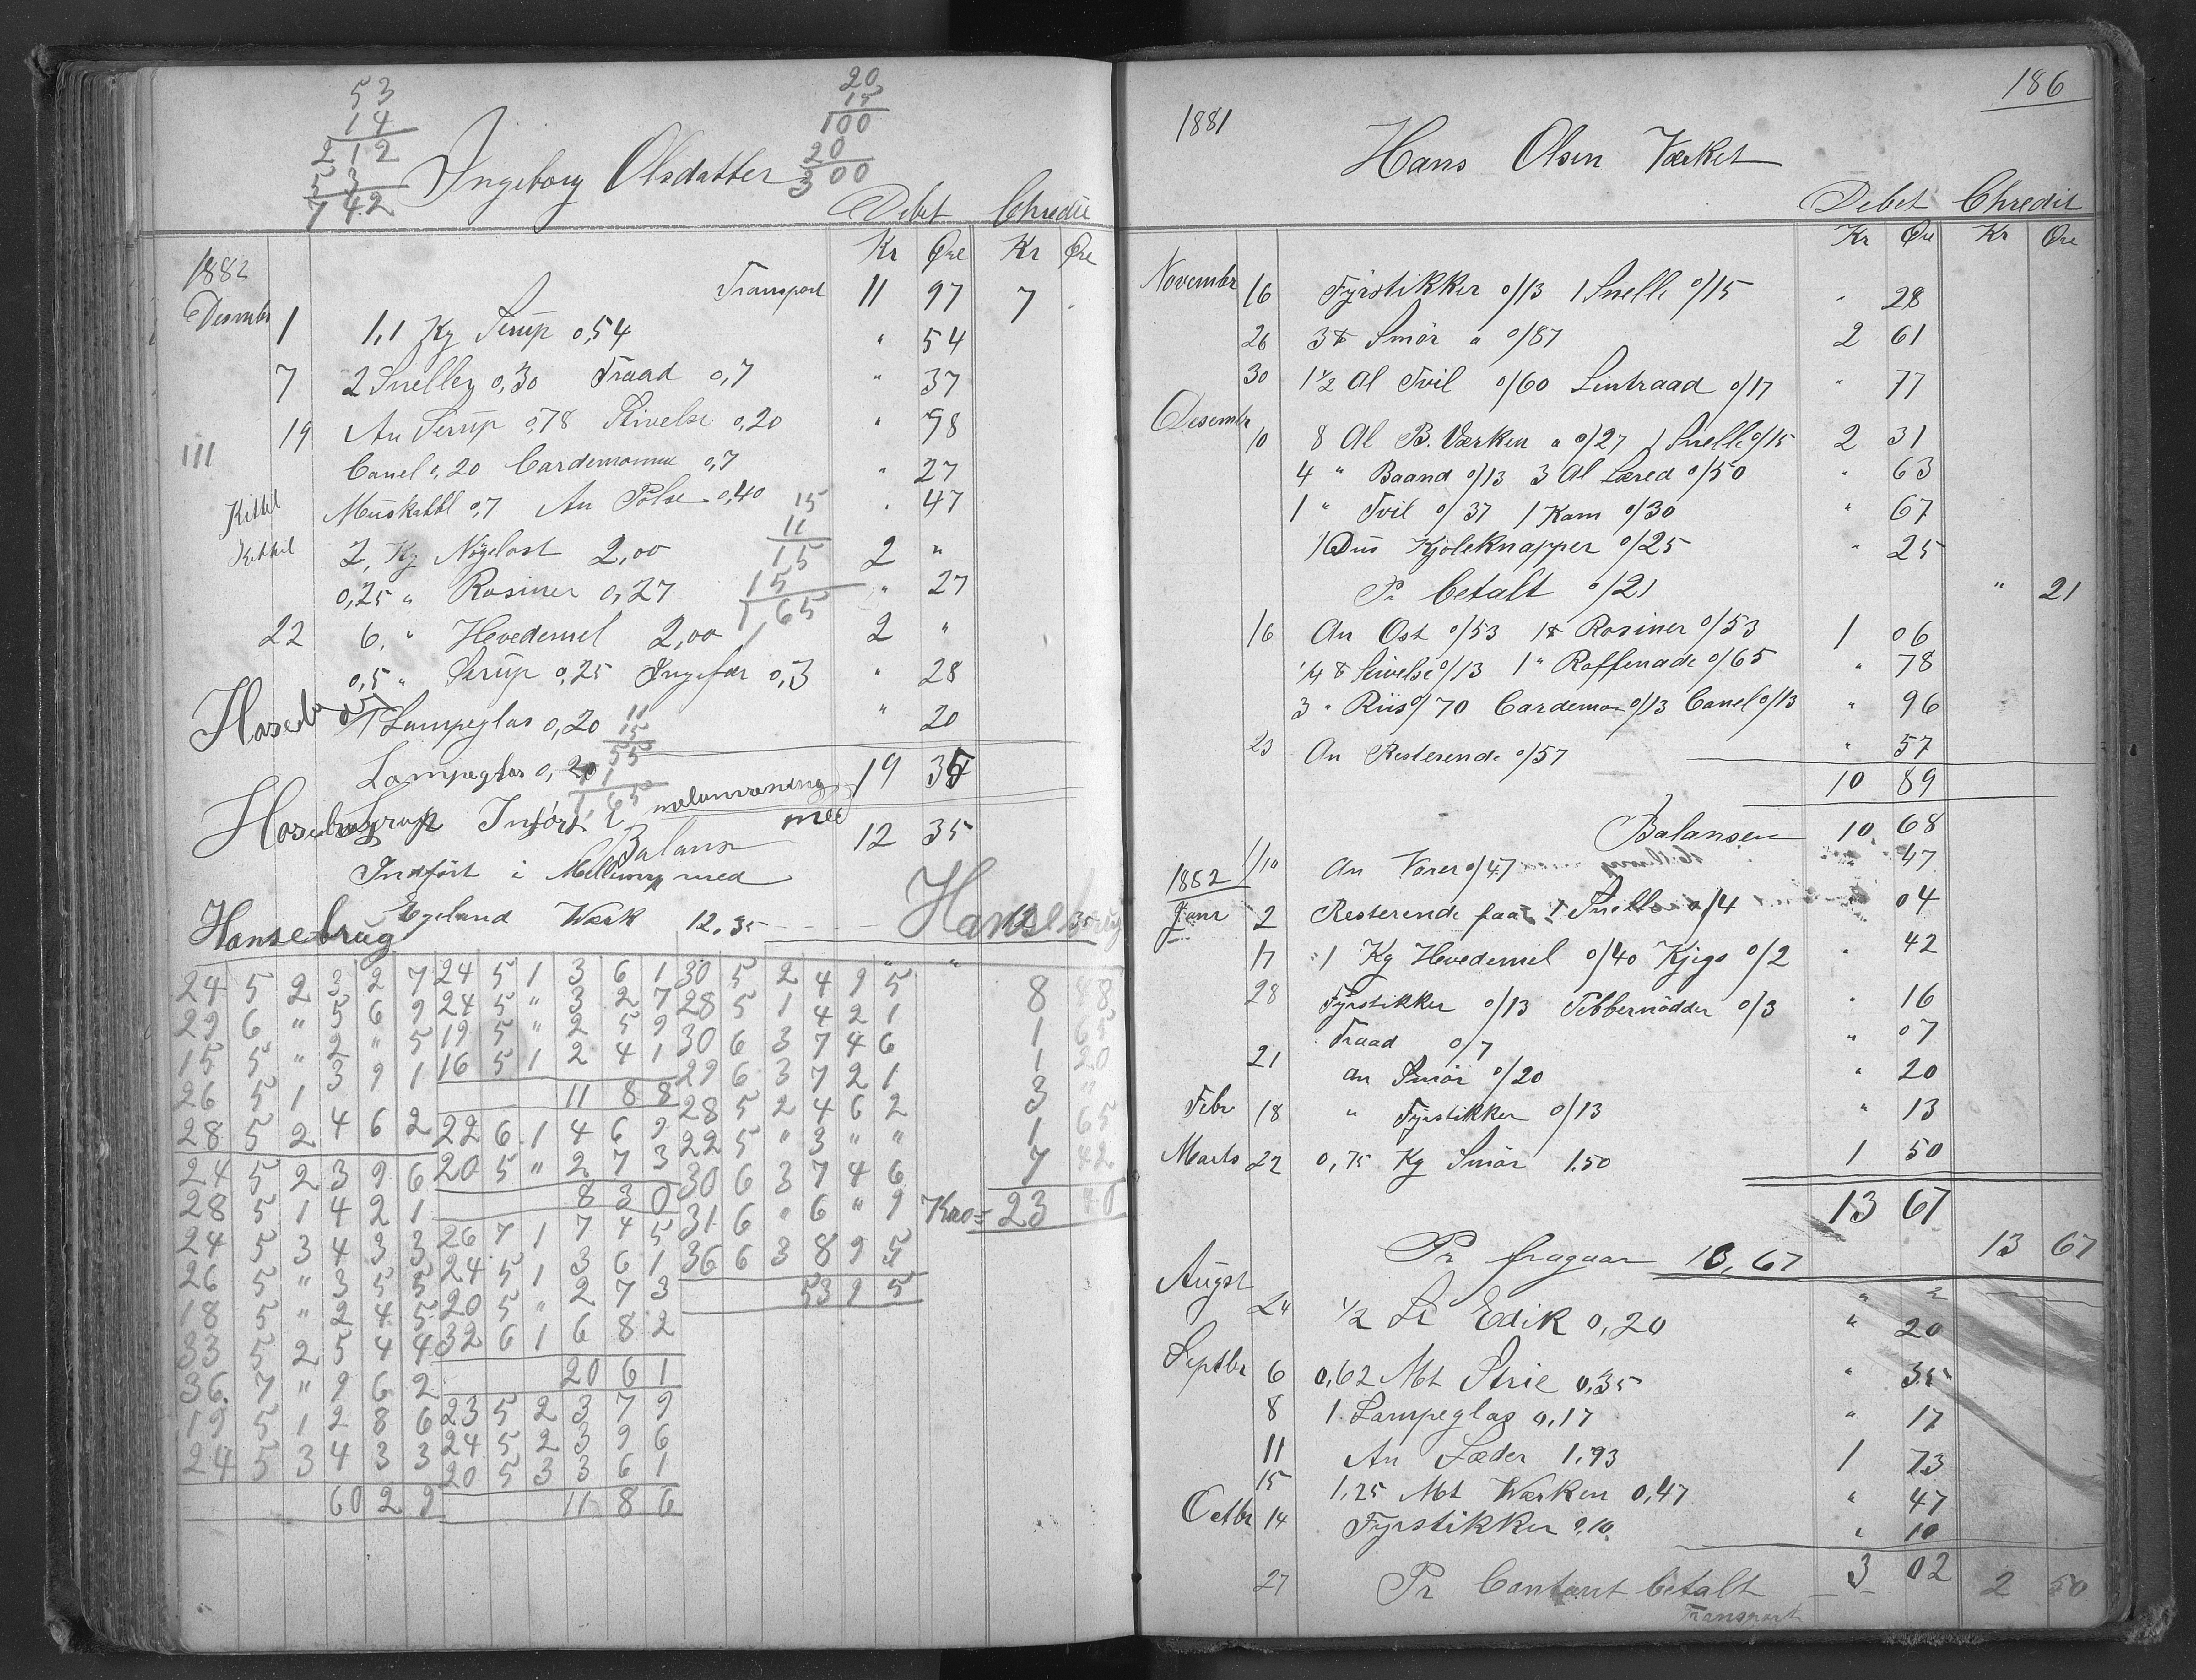 53
14
212
53
742
20
15
100
20
300
Ingeborg Olsdatter
Debet Chredit
Kr Øre Kr Øre
1882
Transport 11 97 7 -
Desembr 1 1,1 Kg Sirup 0,54 " 54
7 2 Sneller 0,30 Traad 0,7 " 37
19 An Sirup 0,78 Stivelse 0,20 " 98
Canel 0,20 Cardemomme 0,7 " 27
Kittil Muskatbl 0,7 An Pølse 0,40 " 47
Kittil 2, Kg Nøgelost 2,00 2 "
0,25 " Rosiner 0,27 " 27
15
11
15
15
1 65
22 6, " Hvedemel 2,00 2 "
0,5 " Sirup 0,25 Ingefær 0,3 " 28
1 Lampeglas 0,20 " 20
Lampeglas 0,20 19 35
11
15
55
11
1,65
Balans 12 35
Indført i Mellemr med
Egeland Værk 12.35 - - - - 12 35
Hansebrug
Hansebrug
24 5 2 3 2 7 24 5 1 3 6 1 30 5 2 4 9 5 8 88
29 6 " 5 6 9 24 5 " 3 2 7 28 5 1 4 2 1 1 65
15 5 " 2 " 5 19 5 " 2 5 9 30 6 3 7 4 6 1 20
26 5 1 3 9 1 16 5 1 2 4 1 29 6 3 7 2 1 3 "
11 8 8 28 5 2 4 6 2 1 65
28 5 2 4 6 2 22 6 1 4 6 9 22 5 " 3 " " 7 42
24 5 2 3 9 6 20 5 " 2 7 3 30 6 3 7 4 6 23 40
28 5 1 4 2 1 8 3 0 31 6 " 6 " 9
24 5 3 4 3 3 26 7 1 7 4 5 36 6 3 8 9 5
26 5 " 3 5 5 24 5 1 3 6 1 53 9 5
18 5 " 2 4 5 20 5 " 2 7 3
33 5 2 5 4 4 32 6 1 6 8 2
36 7 " 9 6 2 20 6 1
19 5 1 2 8 6 23 5 2 3 7 9
24 5 3 4 3 3 24 5 2 3 9 6
20 5 3 3 6 1
60 2 9 11 8 6
186
1881
Hans Olsen Værket
Debet Chredit
Kr Øre Kr Øre
Novembr 16 Fyrstikker 0/13 1 Snelle 0/15 " 28
26 3 ℔ Smør a 0/87 2 61
30 1 1/2 Al Tvil 0/60 Lintraad 0/17 " 77
Desembr 10 8 Al B. Værken a 0/27 1 Snelle 0/15 2 31
4 " Baand 0/13 3 Al Læred 0/50 " 63
1 " Tvil 0/37 1 Kam 0/30 " 67
1 Dus Kjoleknapper 0/25 " 25
Pr betalt 0/21 " 21
16 An Ost 0/53 1 ℔ Rosiner 0/53 1 06
1/4 ℔ Stivelse 0/13 1 " Raffenade 0/65 " 78
3 " Riis 0/70 Cardemom 0/13 Canel 0/13 " 96
23 An Resterende 0/57 " 57
10 89
Balansen 10 68
1/10 An Varer 0/47 " 47
1882
Janr 2 Resterende paa 1 Snelle 0/4 " 04
17 1 Kg Hevedemel 0/40 Kjegs 0/2 " 42
28 Fyrstikker 0/13 Pebbernødder 0/3 " 16
Traad 0/7 " 07
21 an Smør 0/20 " 20
Febr 18 " Fyrstikker 0/13 " 13
Marts 22 0,75 Kg Smør 1.50 1 50
13 67
Pr fragaar 13,67 13 67
Augst 24 1/2 Lr Edik 0,20 " 20
Septbr 6 0,62 Mt Strie 0,35 " 35
8 1 Lampeglas 0,17 " 17
11 An Læder 1,73 1 73
15 1,25 Mt Værken 0,47 " 47
Octbr 14 Fyrstikker 0,10 " 10
3 02
27 Pr Contant betalt 2 50
Transport